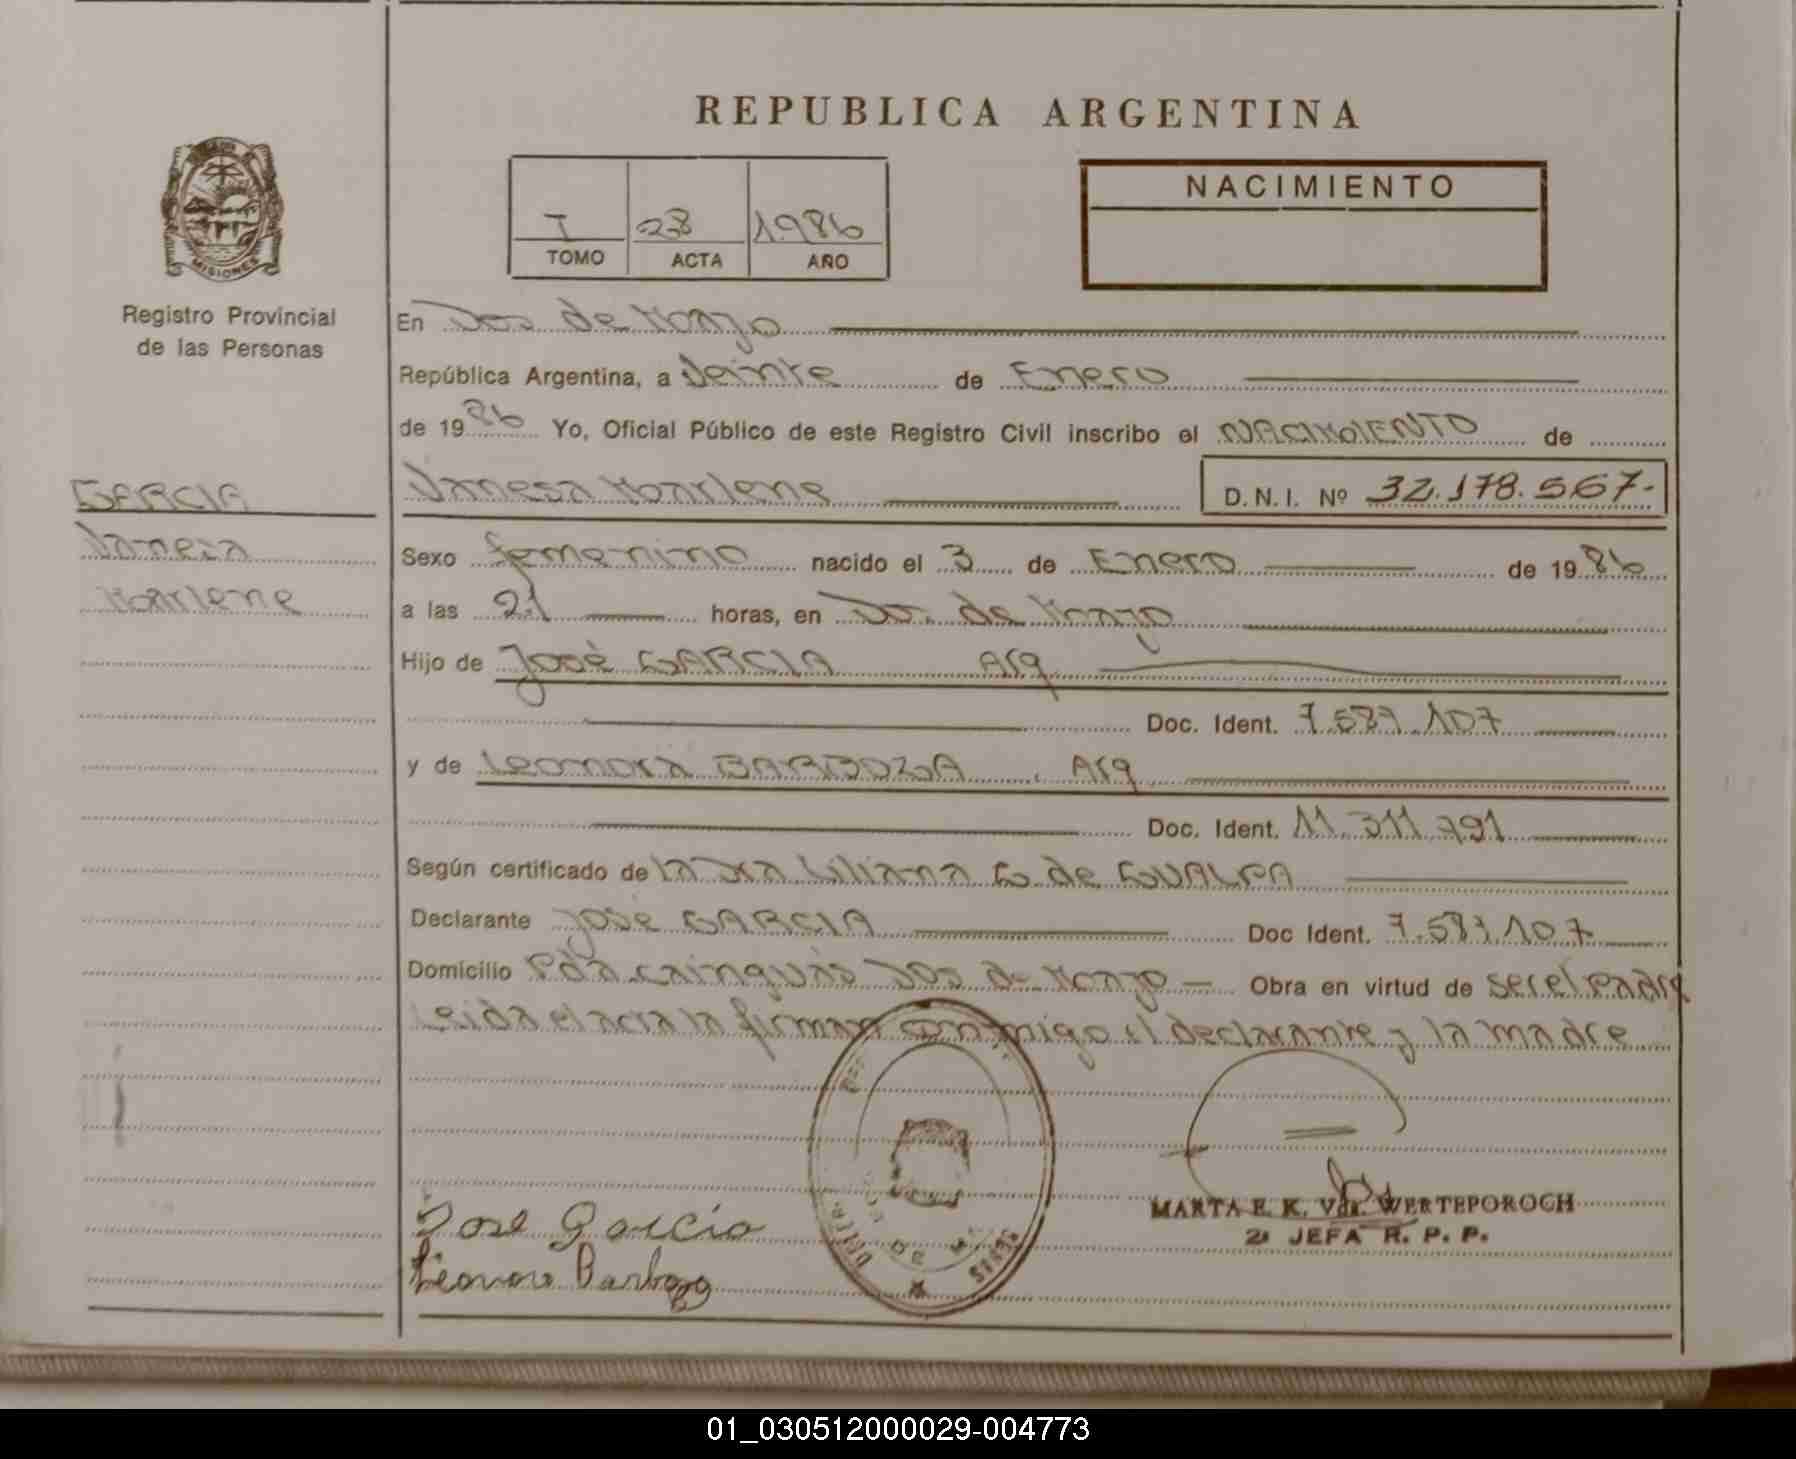 REPUBLICA ARGENTINA
I 28 1986
TOMO ACTA AÑO
NACIMIENTO
MISIONES
Registro Provincial
de las Personas
GARCIA
Vanesa
Marlene
En Dos de Mayo
República Argentina, a Veinte de Enero
de 1986 Yo, Oficial Público de este Registro Civil inscribo el NACIMIENTO de
Vanesa Marlene D.N.I. Nº 32.178.567.-
Sexo femenino nacido el 3 de Enero de 1986
a las 21 horas, en Dos de Mayo
Hijo de José GARCIA Arg
Doc. Ident. 7.587.107
y de Leonora BARBOZA. Arg
Doc. Ident. 11.311.791
Según certificado de la Dra Liliana G. de GUALPA
Declarante José GARCIA Doc Ident. 7.587.107
Domicilio Pda. cainguás Dos de Mayo — Obra en virtud de ser el Padre
Leida el acta la firman conmigo el declarante y la madre
Jose Garcia
Leonora Barboza
MARTA E. K. Vda. WERTEPOROCH
2ª JEFA R. P. P.
01_030512000029-004773